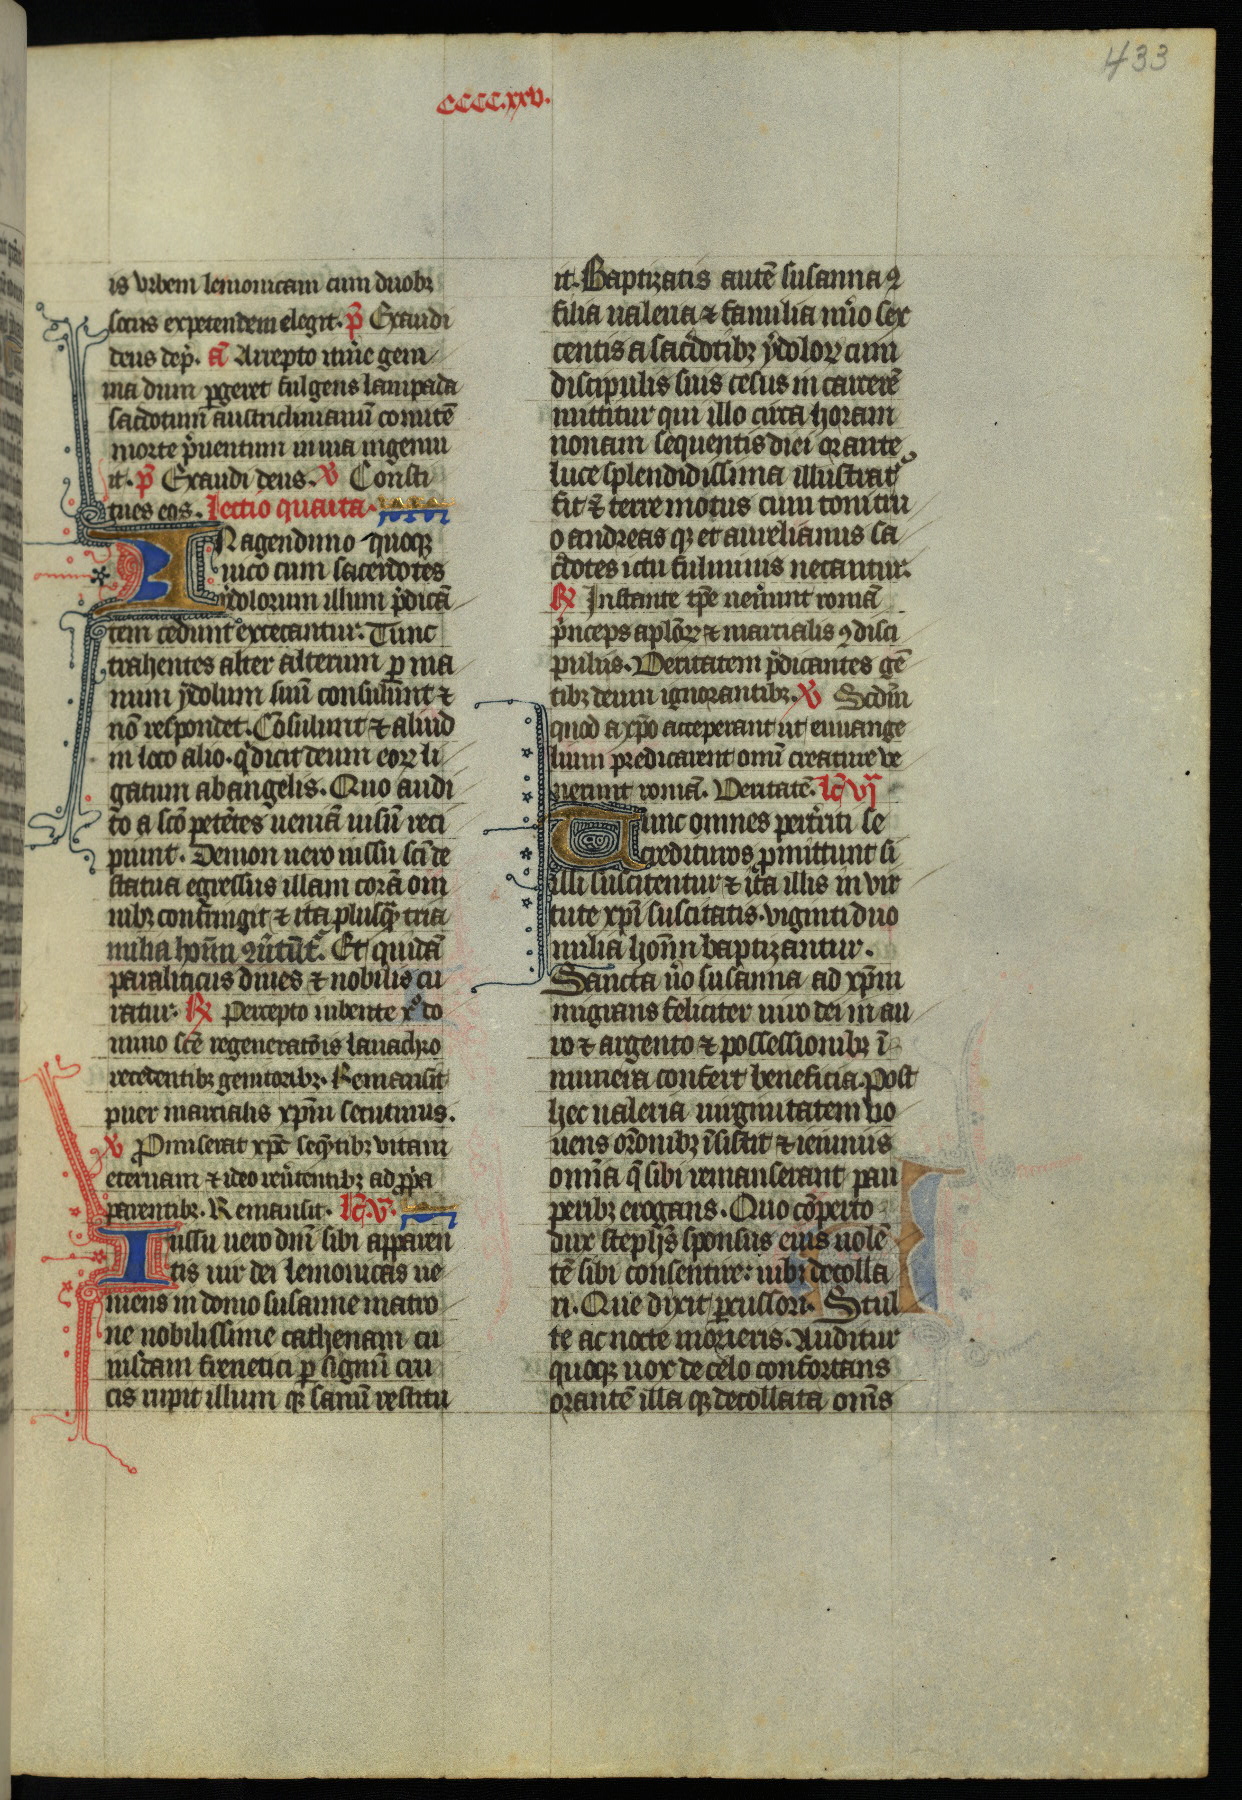 433
CCCC.xxv.
is vrbem lemouicam cum duobꝫ
socus expetendem elegit. p̄ Exaudi
deus dep̄. a͞ Arrepto itin̄e gem
ma dum ꝑgeret fulgens lampada
sac̄dotum austriclinianū comitē
morte p̄uentum in uia ingemu
it. p̄ Exaudi deus. v Consti
tues eos. Lectio quarta.
In agenduno quoqꝫ
uico cum sacerdotes
ydolorum illum p̄dicā
tem cedunt excecantur. Tunc
trahentes alter alterum ꝑ ma
num ydolum suū consulunt ⁊
nō respondet. Cōsulunt ⁊ aliud
in loco alio. q̄ dicit deum eoꝝ li
gatum ab angelis. Quo audi
to a scō petētes ueniā uisū reci
piunt. Demon uero iussu sc̄i de
statua egressus illam corā om
nibꝫ confringit ⁊ ita plusqꝫ tria
milia hoīm ꝯuertūt᷑. Et quidā
paraliticus diues ⁊ nobilis cu
ratur. ℟ Percepto iubente xo̅ do
mino sc̄e regeneratōis lauachro
recedentibꝫ genitoribꝫ. Remansit
puer marcialis xp̄m secuturus.
v Promiserat xp̄c seq̄ntibꝫ vitam
eternam ⁊ ideo reūtentibꝫ ad ꝓp̄a
parentibꝫ. Remansit. lc̄.v.
Iussu uero dn̄i sibi apparen
tis uir dei lemouicas ue
niens in domo susanne matro
ne nobilissime cathenam cu
iusdam frenetici ꝑ signū cru
cis rupit illum qꝫ sanū restitu
it. Baptizatis autē susanna ꝯ
filia ualeria ⁊ familia nūo sex
centis a sac̄dotibꝫ ydoloꝝ cum
discipulis suis cesus in carcerē
mittitur qui illo circa horam
nonam sequentis diei orante
luce splendidissima illustrat᷑
fit ⁊ terre motus cum tonitru
o andreas qꝫ et aurelianus sa
c̄dotes ictu fulminis necantur.
℟ Instante tp̄e uenerunt romā
p̄nceps ap̄loꝝ ⁊ marcialis ꝯdisci
pulus. Ueritatem p̄dicantes gē
tibꝫ deum ignorantibꝫ. v Scdm̄
quod a xp̄o acceperant ut euuange
lium predicarent omī creature ve
nerunt romā. Ueritatē. lc̄ vj
Tunc omnes perterriti se
credituros ꝓmittunt si
illi suscitentur ⁊ ita illis in vir
tute xp̄i suscitatis. viginti duo
milia hoīm baptizantur.
Sancta u̅o susanna ad xp̄m
migrans feliciter uiro dei in au
ro ⁊ argento ⁊ possessionibꝫ ī
numera confert beneficia. Post
hec ualeria uirginitatem uo
uens or̄onibꝫ īsistit ⁊ ieiuniis
omīa q̄ sibi remanserant pau
peribꝫ erogans. Quo cōperto
dux steph̄s sponsus eius nolē
tē sibi consentire: iubꝫ decolla
ri. Que dixit ꝑcussori. Stul
te ac nocte morieris. Auditur
quoqꝫ uox de celo confortans
orantē illa qꝫ decollata om̄s